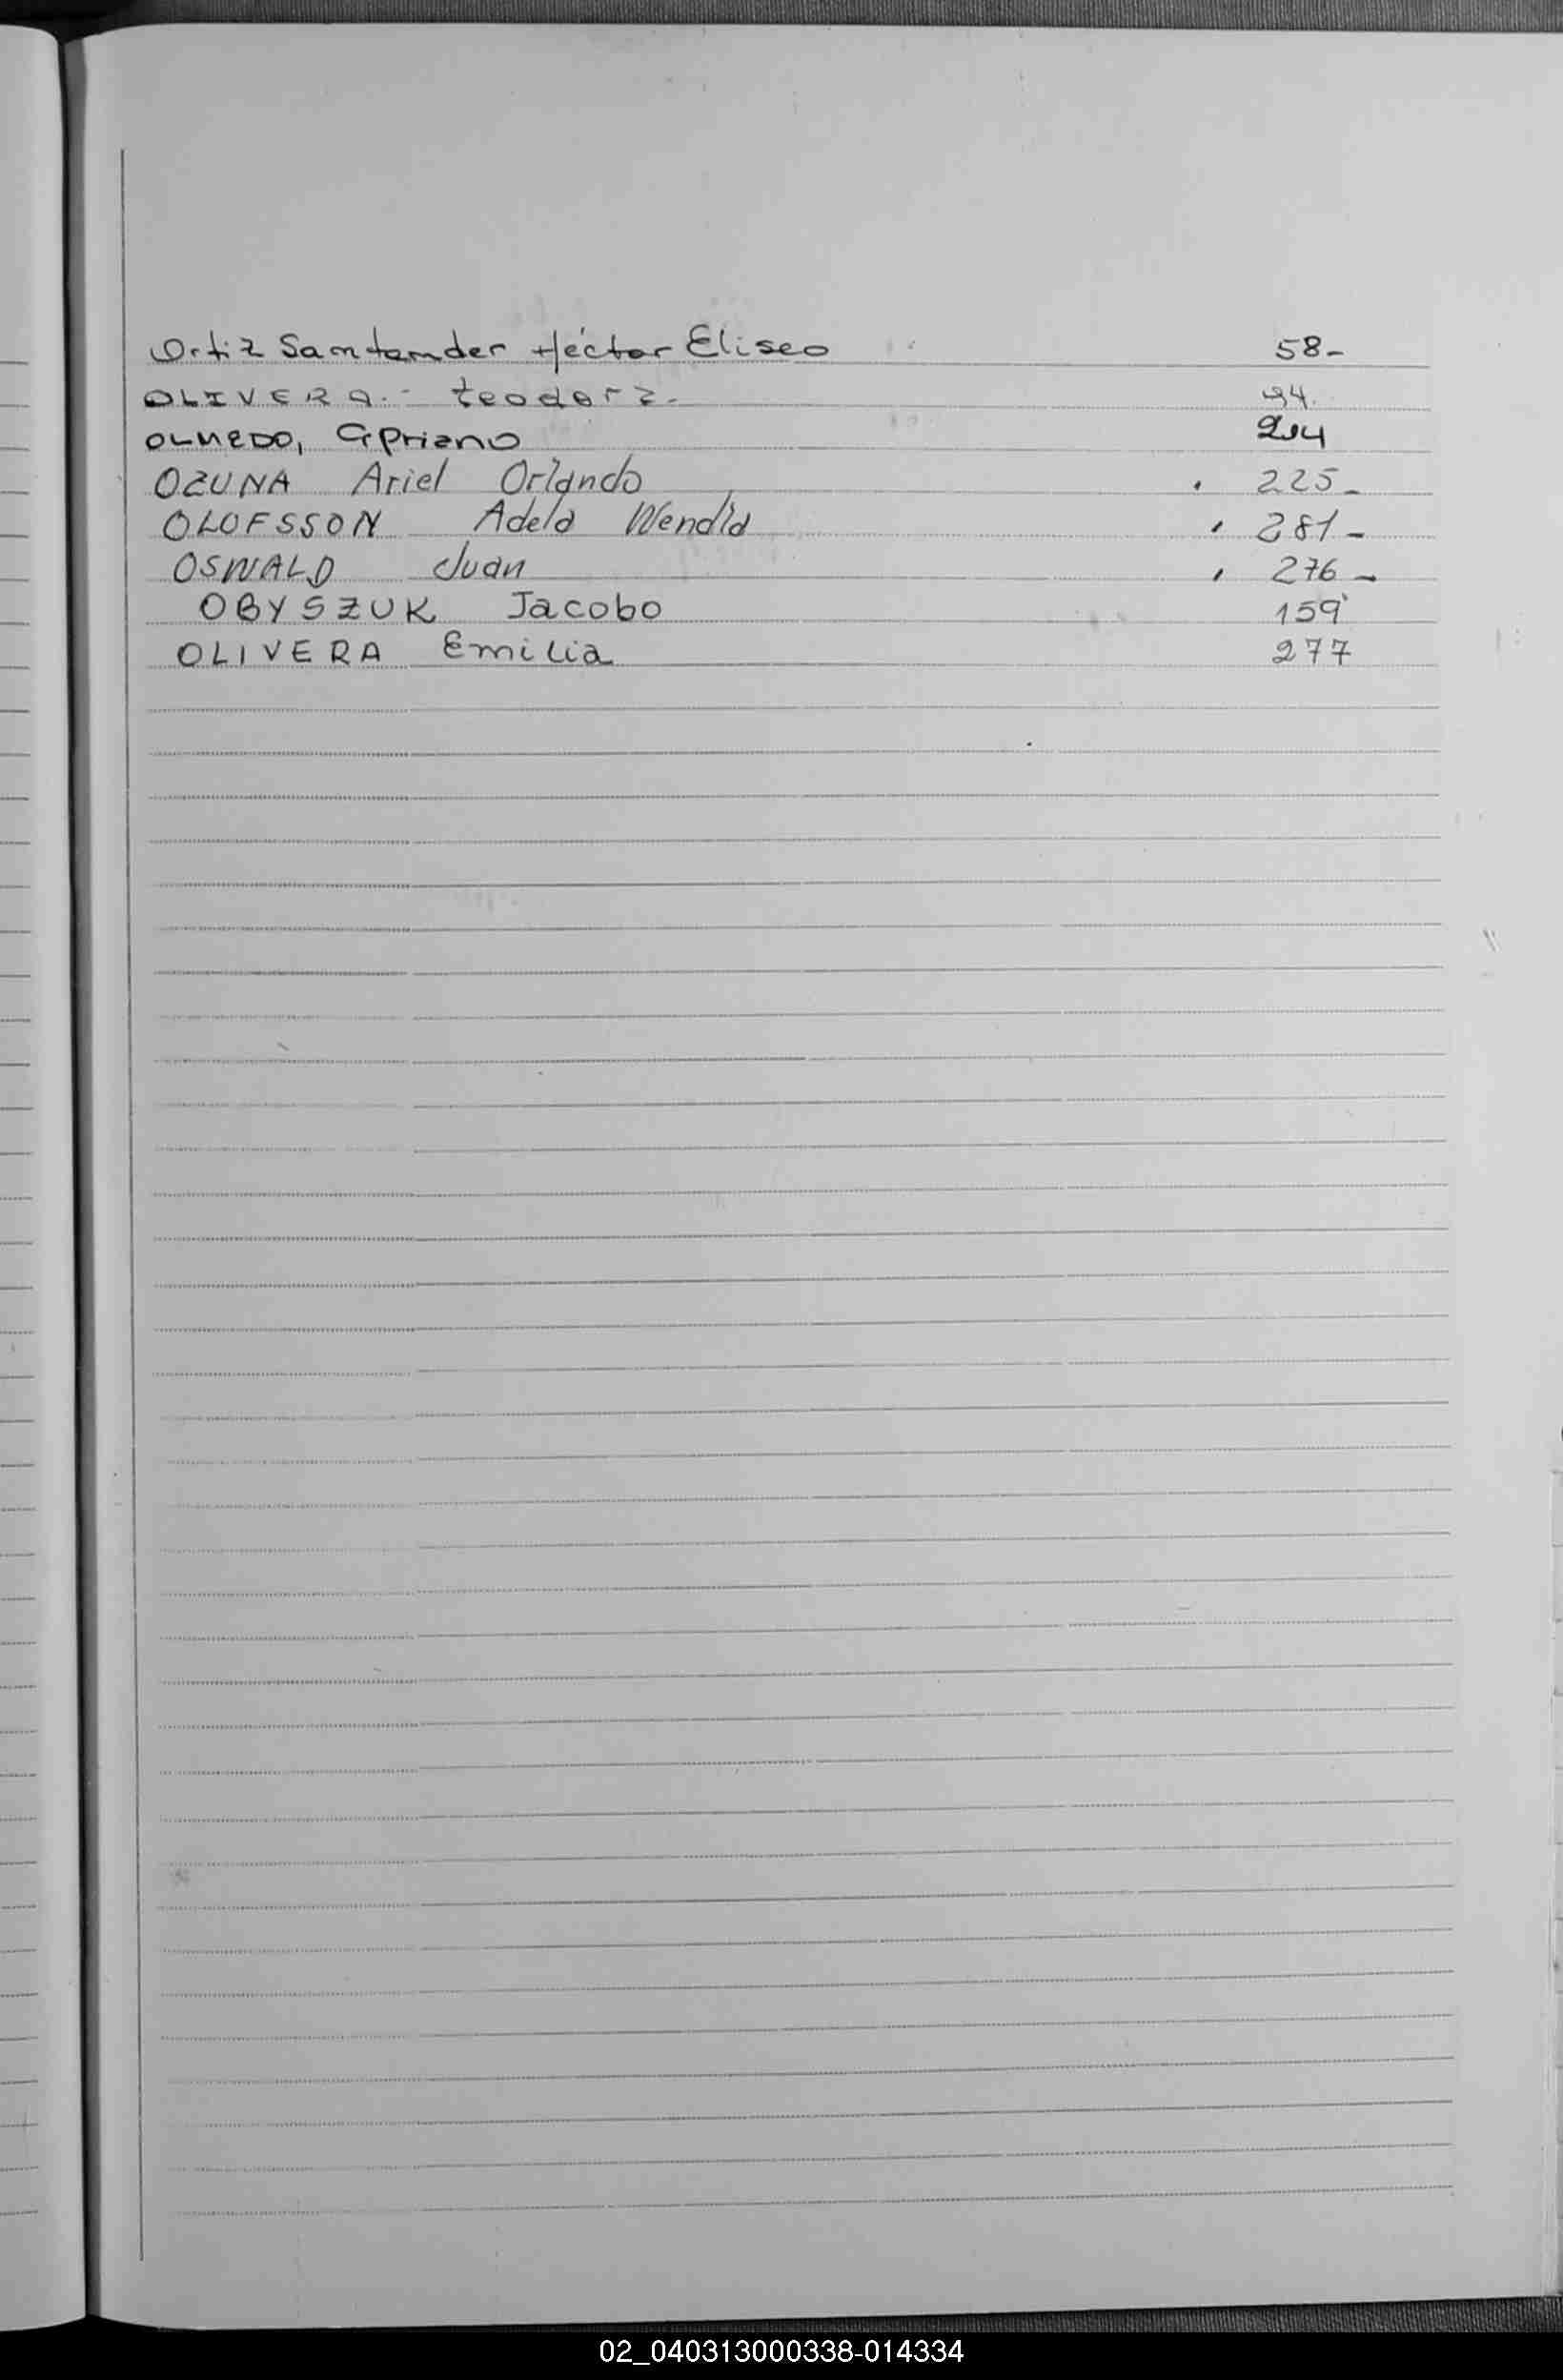 Ortiz Santander Héctor Eliseo 58-
OLIVERA.- teodora.- 94.
OLMEDO, Cipriano 204
OZUNA Ariel Orlando . 225-
OLOFSSON Adela Wendla , 281-
OSWALD Juan , 276-
OBYSZUK Jacobo 159
OLIVERA Emilia 277
02_040313000338-014334